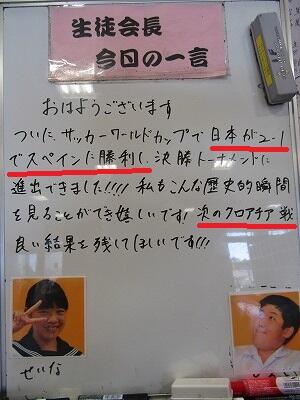 生徒会長
今日の一言
おはようございます
ついに、サッカーワールドカップで日本が2-1
でスペインに勝利し、決勝トーナメントに
進出できました!!!! 私もこんな歴史的瞬間
を見ることができ嬉しいです! 次のクロアチア戦
良い結果を残してほしいです!!!
せいな